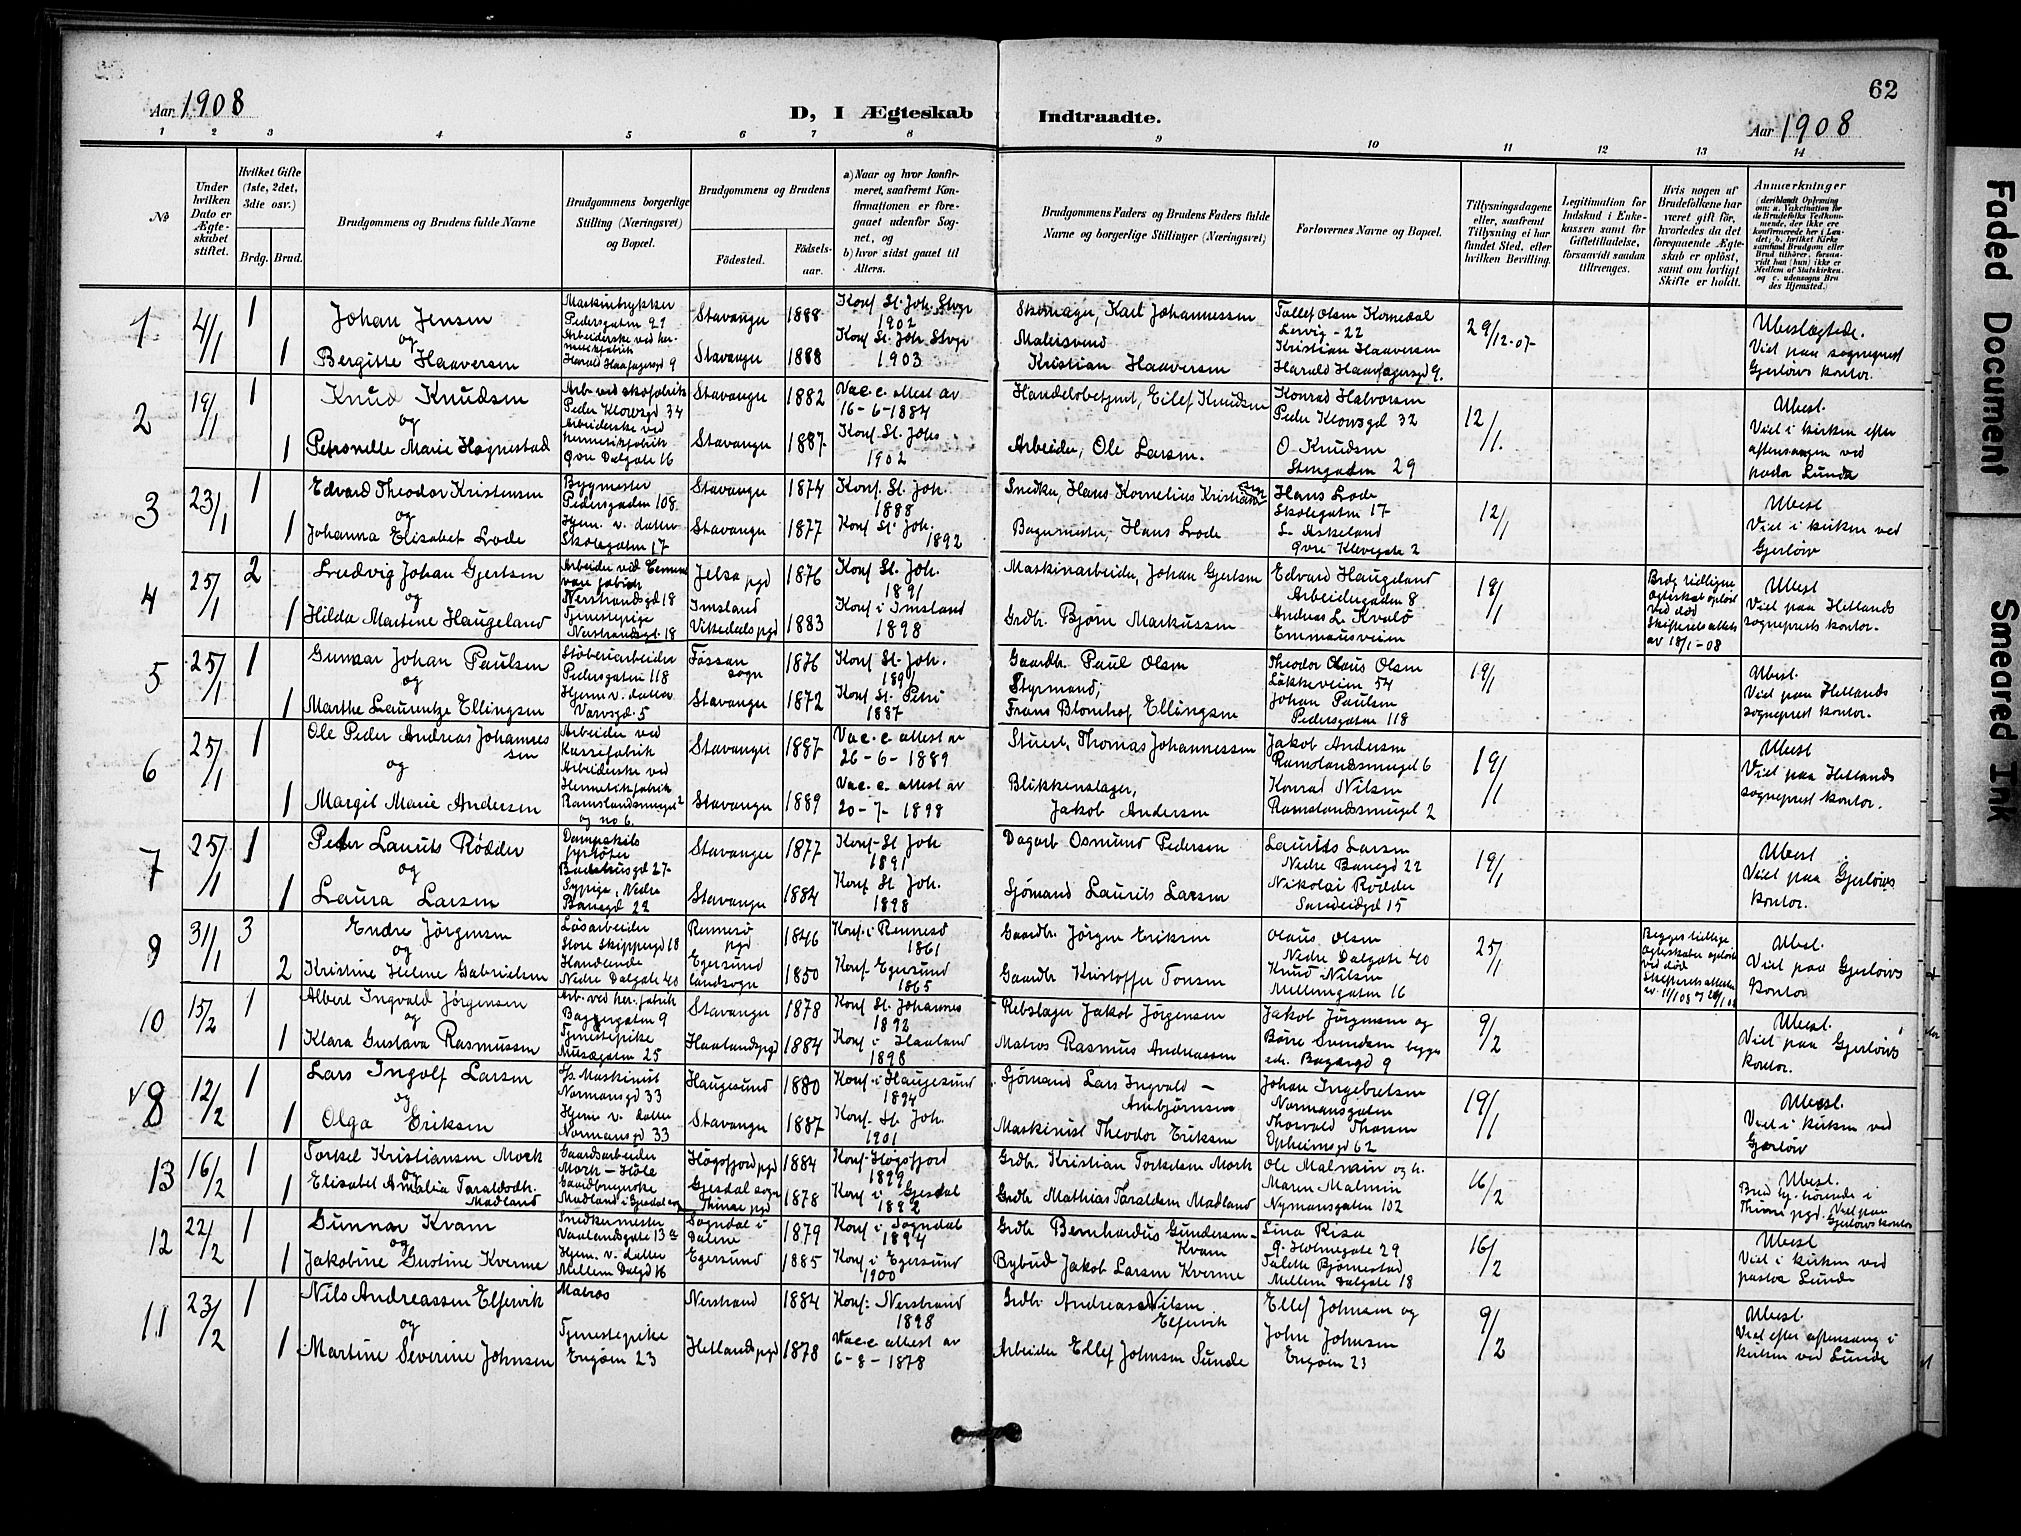 62
Aar 1908
D, I Ægteskab Indtraadte.
Aar 1908
1 2 3 4 5 6 7 8 9 10 11 12 13 14
No
Under hvilken Dato er Ægteskabet stiftet.
Hvilket Gifte (1ste, 2det, 3die osv.)
Brdg. Brud.
Brudgommens og Brudens fulde Navne
Brudgommens borgerlige Stilling (Næringsvei) og Bopæl.
Brudgommens og Brudens
Födested.
Födselsaar.
a) Naar og hvor konfirmeret, saafremt Konfirmationen er foregaaet udenfor Sognet, og
b) hvor sidst gaaet til Alters.
Brudgommens Faders og Brudens Faders fulde Navne og borgerlige Stillinger (Næringsvei)
Forlovernes Navne og Bopæl.
Tillysningsdagene eller, saafremt Tillysning ei har fundet Sted, efter hvilken Bevilling.
Legitimation for Indskud i Enkekassen samt for Giftetilladelse, forsaavidt saadan tiltrænges.
Hvis nogen af Brudefolkene har været gift för, hvorledes da det foregaaende Ægteskab er oplöst, samt om lovligt Skifte er holdt.
Anmerkninger
(deriblandt Oplysning om: a. Vakcination for de Brudefolks Vedkommende, der ikke ere konfirmerede her i Landet; b. hvilket Kirkesamfund Brudgom eller Brud tilhörer, forsaavidt han (hun) ikke er Medlem af Statskirken, og c. udensogns Brudes Hjemsted.)
1 4/1 1 Johan Jensen
og
1 Bergitte Haaversen
Maskintrykker
Pedersgaten 29
Arbeiderske ved hermetikfabrik
Harald Haarfagersgd 9
Stavanger 1888 Konf. St. Joh. Stvgr 1902
Stavanger 1888 Konf. St. Joh. Stvgr 1903
Skomager, Karl Johannessen
Malersvend
Kristian Haaversen
Tollef Olsen Kornedal
Lervig - 22
Kristian Haaversen
Harald Haarfagersgd 9.
29/12-07-
Ubeslægtede.
Viet paa sogneprest
Gjerløws kontor.
2 19/1 1 Knud Knudsen
og
1 Petronelle Marie Høgnestad
Arb. ved skofabrik
Peder Klowsgd 34
Arbeiderske ved
hermetikfabrik
Øvre Dalgate 16
Stavanger 1882 Vac. c. attest av 16-6-1884
Stavanger 1887 Konf. St. Johs 1902
Handelsbetjent, Eilef Knudsen
Arbeider, Ole Larsen.
Konrad Halvorsen
Peder Klowsgd 32
O. Knudsen
Stengaden 29
12/1.
Ubesl.
Viet i kirken efter
aftensangen ved
pastor Lunde
3 23/1 1 Edvard Theodor Kristensen
og
1 Johanna Elisabet Lode
Bygmester
Pedersgaden 108
Hjem. v. datter
Skolegaten 17
Stavanger 1874 Konf. St. Joh. 1888
Stavanger 1877 Konf. St. Joh. 1892
Snedker, Hans Kornelius Kristiansen
Bagermester, Hans Lode
Hans Lode
Skolegaten 17
L. Askeland
Øvre Klevegate 2
12/1
Ubesl
Viet i kirken ved
Gjerløw
4 25/1 2 Ludvig Johan Gjertsen
og
1 Hilda Martine Haugeland
Arbeider ved Cementvare fabrik
Nerstrandsgd 18
Tjenestepige
Nerstrandsgt. 18
Jelsa pgd 1876 Konf. St. Joh. 1891
Imsland
Vikedals pgd 1883 Konf. i Imsland 1898
Maskinarbeider, Johan Gjertsen
Grdbr. Bjørn Markussen
Edvard Haugeland
Arbeidergaden 8
Andreas L. Kvalø
Emmausveien
19/1
Brdg tidligere
egteskab opløst
ved død
Skifterets attest
av 18/1-08
Ubesl
Viet paa Hetlands
sogneprests kontor.
5 25/1 1 Gunnar Johan Paulsen
og
1 Marthe Laurentze Ellingsen
Støberiarbeider
Pedersgaten 118
Hjem. v. datter
Varvsgd. 5
Fossan sogn 1876 Konf. St. Joh. 1891
Stavanger 1872 Konf St. Petri 1887
Gaardbr. Paul Olsen
Styrmand,
Frans Blomhof Ellingsen
Theodor Olaus Olsen
Løkkeveien 54
Johan Paulsen
Pedersgaten 118
19/1
Ubesl.
Viet paa Hetlands
sogneprest kontor.
6 25/1 1 Ole Peder Andreas Johannessen
og
1 Margit Marie Andersen
Arbeider ved
Kassefabrik
Arbeiderske ved
Hermetikfabrik
Ramslandssmuget 2
og no 6.
Stavanger 1887 Vac. c. attest av 26-6-1889
Stavanger 1889 Vac. c. attest av 20-7-1898
Stuert, Thomas Johannessen
Blikkenslager,
Jakob Andersen
Jakob Andersen
Ramslandssmuget 6
Konrad Nilsen
Ramslandssmuget 2
19/1
Ubesl
Viet paa Hetlands
sogneprest kontor.
7 25/1 1 Peder Laurits Rødder
og
1 Laura Larsen
Dampskibs
fyrbøter
Badehusgd 27
Sypige, Nedre
Banegd 22
Stavanger 1877 Konf. St Joh 1891
Stavanger 1884 Konf St. Joh. 1898
Dagarb Osmund Pedersen
Sjømand Laurits Larsen
Laurits Larsen
Nedre Banegd 22
Nikolai Rødder
Sandeidgd 15
19/1
Ubesl
Viet paa Gjerløws
kontor.
9 31/1 3 Endre Jörgensen
og
2 Kristine Helene Gabrielsen
Løsarbeider
Store Skippergd 18
Handlende
Nedre Dalgate 40
Rennesø pgd 1846 Konf. i Rennesø 1861
Egersund landsogn 1850 Konf. Egersund 1865
Gaardbr. Jörgen Eriksen
Gaardbr Kristoffer Tonsen
Olaus Olsen
Nedre Dalgate 40
Knud Nilsen
Mellemgaten 16
25/1
Begges tidlige
egteskaber opløst
ved død
Skifterets attester
Ubesl.
Viet paa Gjerløws
kontor
10 15/2 1 Albert Ingvald Jörgensen
og
1 Klara Gustava Rasmussen
Arb. ved her. fabrik
Baggergaten 9
Tjenestepike
Musægaten 25
Stavanger 1878 Konf St. Johannes 1892
Haalands pgd 1884 Konf i Haaland 1898
Rebslager Jakob Jörgensen
Matros Rasmus Andreassen
Jakob Jörgensen og
Børre Svendsen begge
adr. Bagergd 9
9/2
Ubesl.
Viet paa Gjerløws
kontor.
8 12/2 1 Lars Ingolf Larsen
og
1 Olga Eriksen
Normansgd 33
Hjem v. datter
Normansgd 33
Haugesund 1880 Konf. i Haugesund 1894
Stavanger 1887 Konf. St Joh. 1901
Sjømand Lars Ingvald Ambjørnsen
Maskinist Theodor Eriksen
Johan Ingebretsen
Normansgaten
Thorvald Thorsen
Opheimsgd 62
19/1
Ubesl.
Viet i kirken ved
Gjerløw
13 16/2 1 Torkel Kristiansen Mork
og
1 Elisabet Amalia Taraldsdtr. Madland
Gaardsarbeider
Mork - Høle
Madland i Gjesdal sogn
Høgsfjord pgd 1884 Konf. Høgsfjord 1899
Gjesdal sogn
Thime pgd 1878 Konf i Gjesdal 1892
Grdbr. Kristian Torkelsen Mork
Grdbr Mathias Taraldsen Madland
Ole Malmin og h.
Maren Malmin
Nymansgaten 102
16/2
Ubesl.
Brud hj. hørende i
Thime pgd. Viet paa
Gjerløws kontor
12 22/2 1 Gunnar Kvam
og
1 Jakobine Gustine Kverme
Snedkermester
Vaalandsgate 13 a
Hjem. v. datter
Mellem Dalgd 16
Sogndal i Dalene 1879 Konf i Sogndal 1894
Egersund 1885 Konf i Egersund 1900
Grdbr Bernhardus Gundersen Kvam
Bybud Jakob Larsen Kverme
Lina Risa
g. Holmegate 29
Talette Bjørnestad
Mellem Dalgate 18
16/2
Ubesl
Viet i kirken ved
pastor Lunde
11 23/2 1 Nils Andreassen Elfervik
og
1 Martine Severine Johnsen
Matros
Tjenestepike
Engøen 23
Nerstrand 1884 Konf: Nerstrand 1898
Hetlands pgd 1878 Vac. c attest av 6-8-1878
Grdbr Andreas Nilsen Elfervik
Arbeider Ellef Johnsen Sunde
Ellef Johnsen og
John Johnsen
Engøen 23
9/2
Ubesl.
Viet efter aftensang i
kirken ved Lunde
Faded Document
Smeared Ink